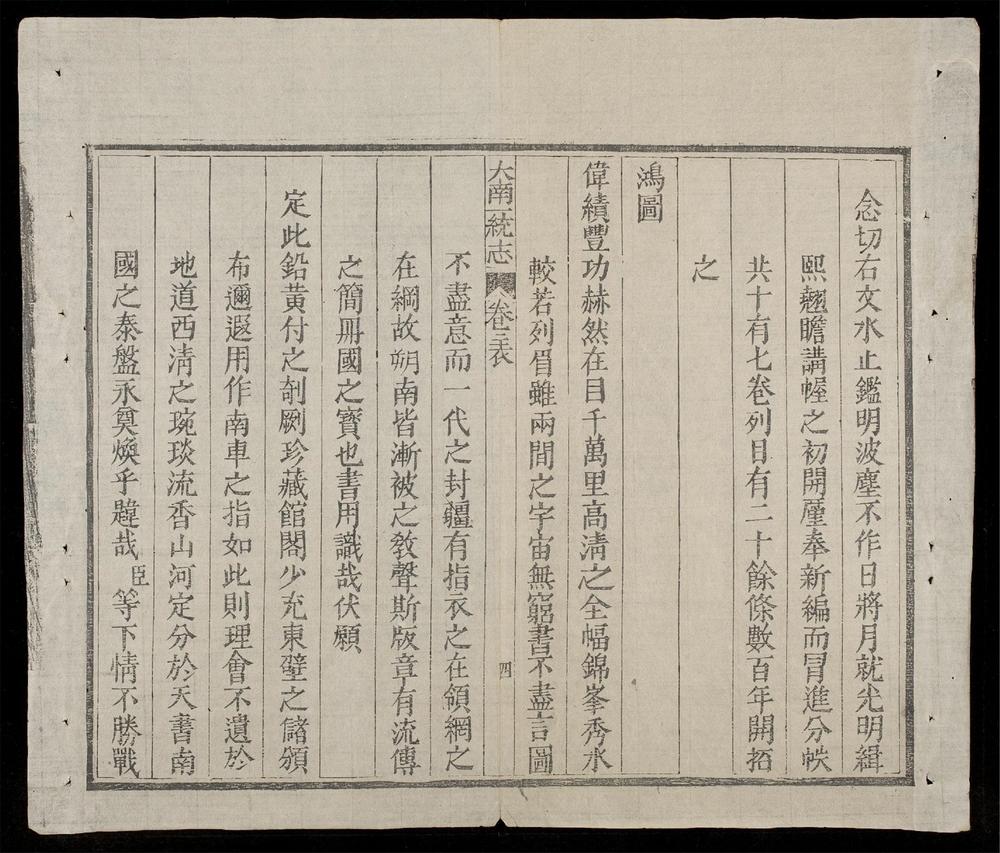 念切右文水止鑑明波塵不作日將月就光明緝
熙趨瞻講幄之初開厪奉新編而冒進分帙
共十有七卷列目有二十餘條數百年開拓
之
鴻圖
偉績豐功赫然在目千萬里高淸之全幅錦峯秀水
較若列眉雖兩間之宇宙無窮書不盡言圖
大南一統志 卷 表 四
不盡意而一代之封疆有指衣之在領網之
在綱故朔南皆漸被之敎聲斯版章有流傳
之簡冊國之寶也書用識哉伏願
定此鉛黃付之剞劂珍藏館閣少充東壁之儲頒
布邇遐用作南車之指如此則理會不遺於
地道西淸之琬琰流香山河定分於天書南
國之泰盤永奠煥乎韙哉臣等下情不勝戰